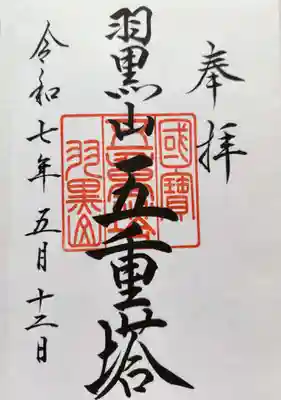 奉拝
國寶
羽黒山五重塔
五重塔
羽黒山
令和七年五月十二日